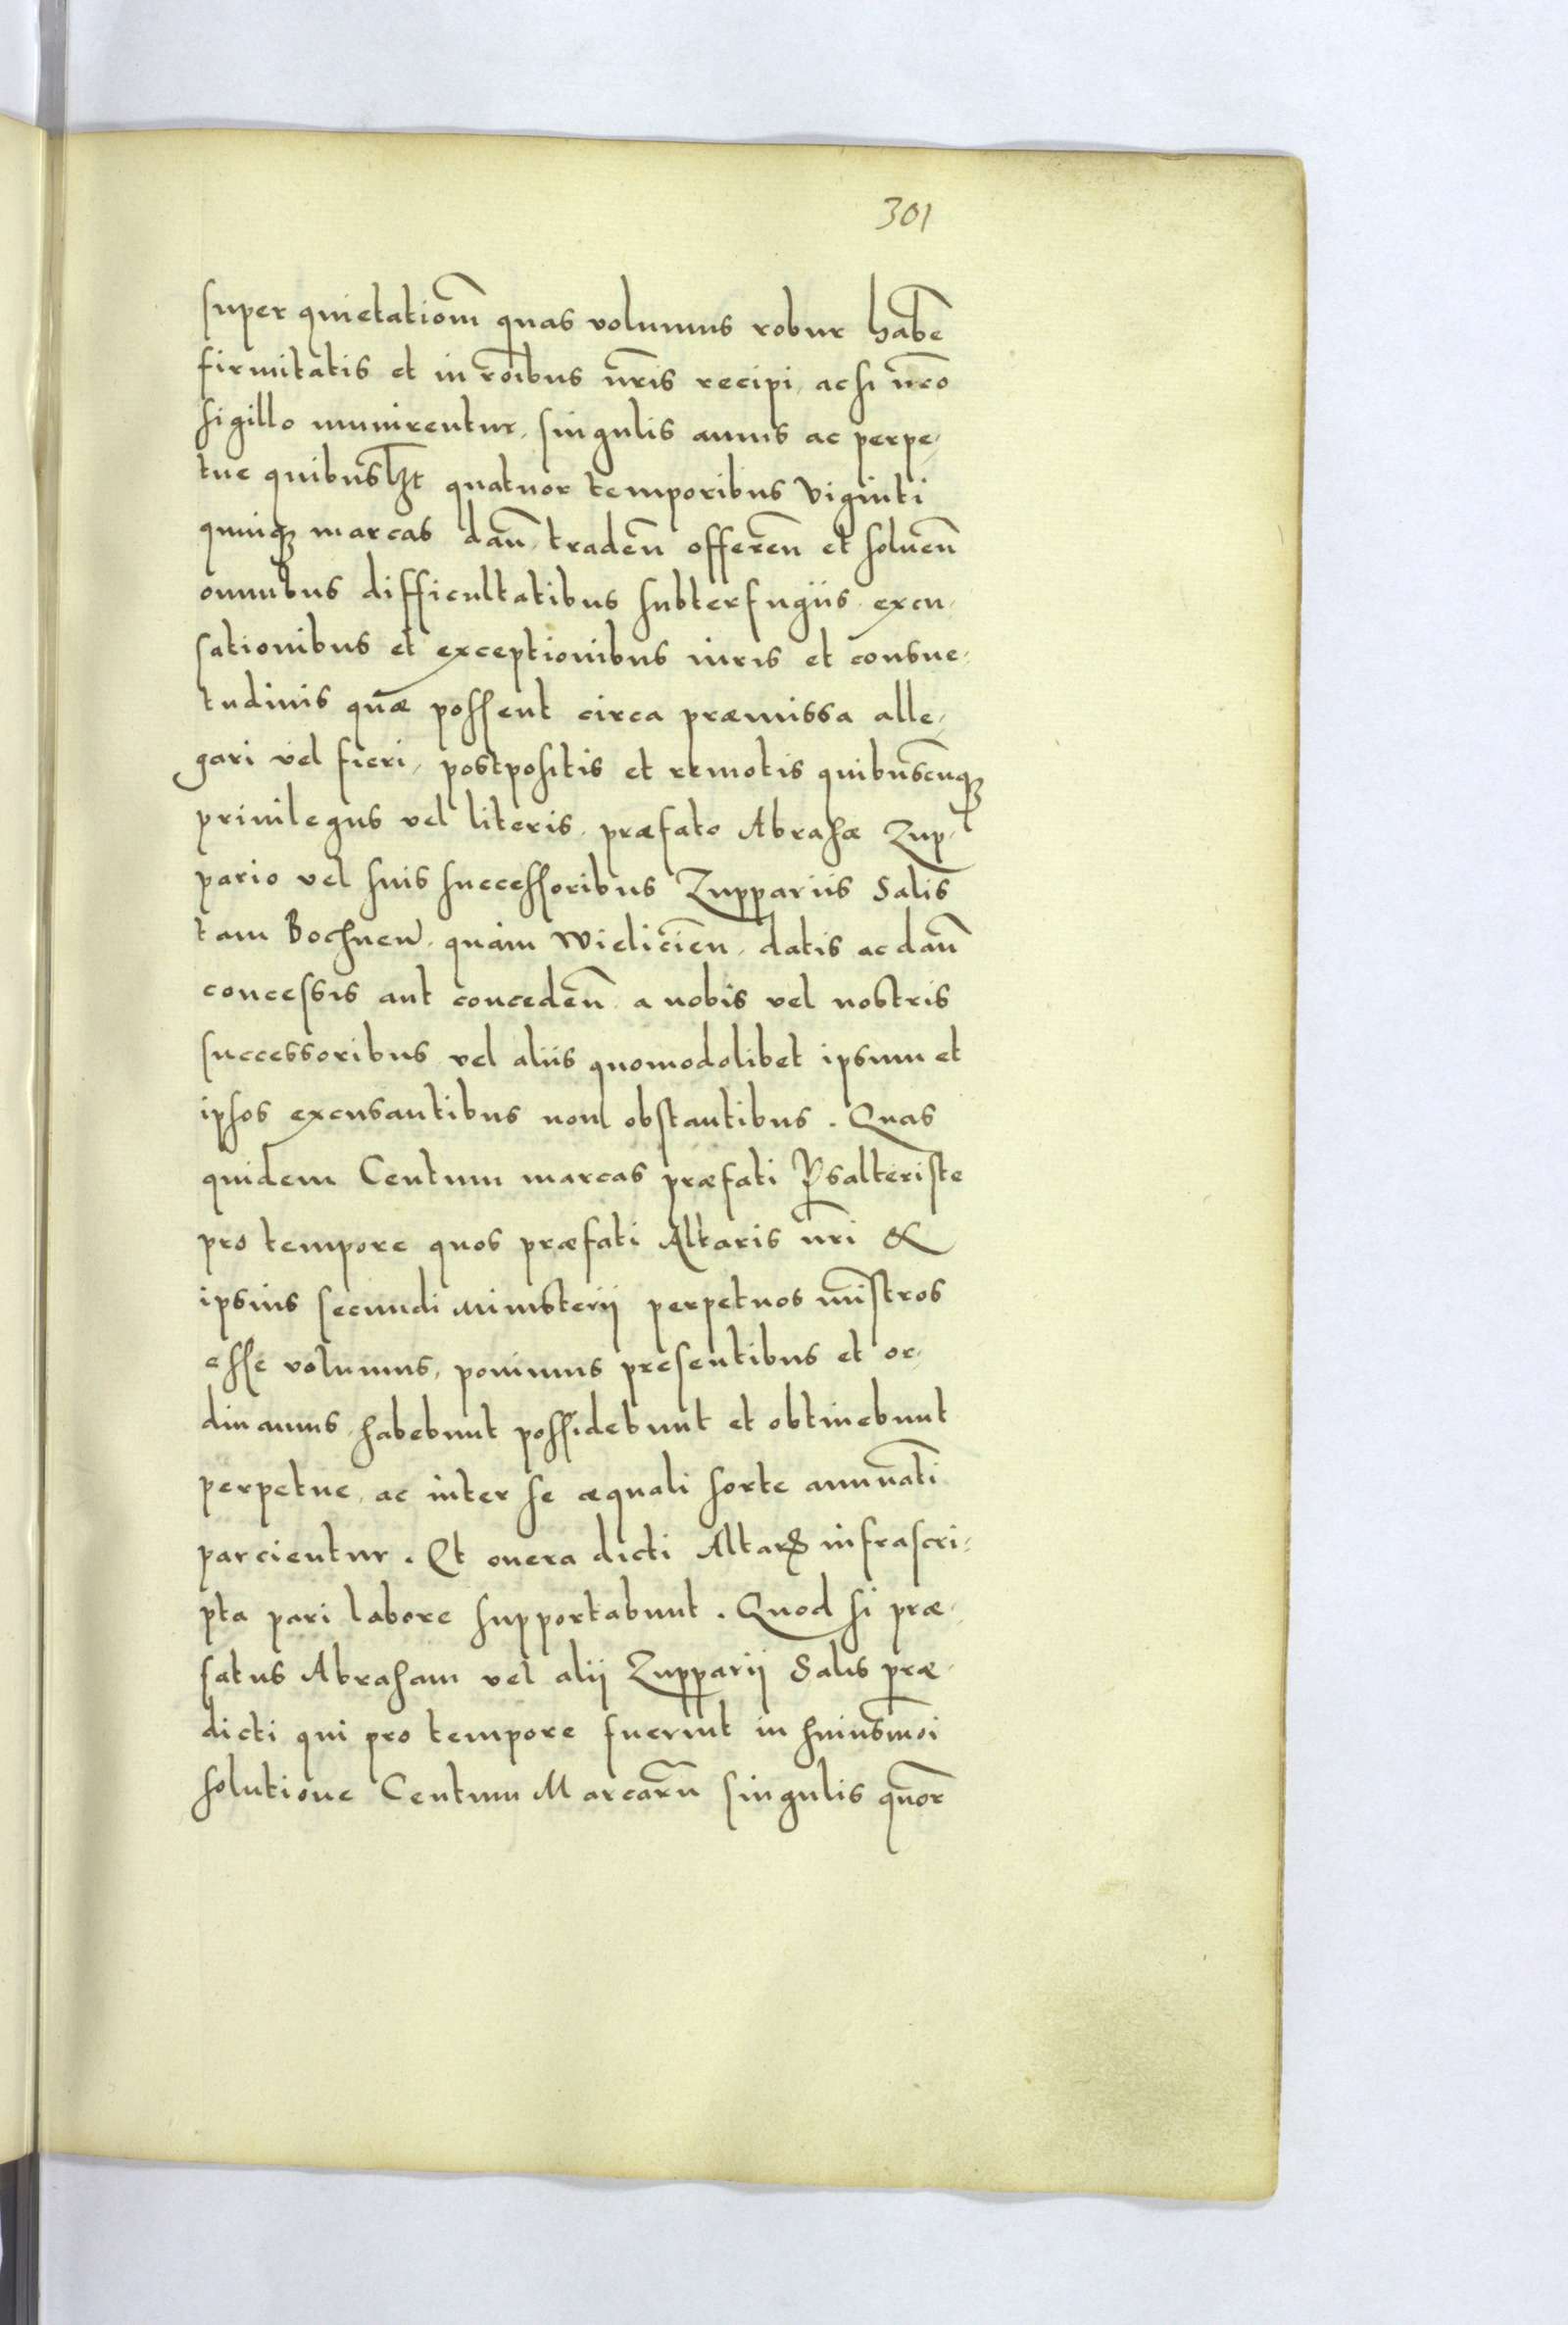 301
super quietatiom̄ quas volumus robur habē
firmitatis et in rōibus nr̄is recipi, acsi nr̄o
sigillo munirentur, singulis annis ac perpe,
tue quibuslꝫt quatuor temporibus viginti
quinqꝫ marcas dan̄, traden̄ offeren̄ et soluen̄
omnibus difficultatibus subterfugiis, excu,
sationibus et exceptionibus iuris et consue,
tudinis quæ possent circa præmissa alle,
gari vel fieri, postpositis et remotis quibuscūqꝫ
priuilegiis vel literis, præfato Abrahæ Zup,
pario vel suis successoribus Zuppariis Salis
tam Bochnen̄. quàm Wielicien̄, datis ac dan̄
concessis aut conceden̄ a nobis vel nostris
successoribus vel aliis quomodolibet ipsum et
ipsos excusantibus non obstantibus. Quas
quidem Centum marcas præfati Psalteriste
pro tempore quos præfati Altaris nr̄i &
ipsius secundi ministerij perpetuos mīnstros
esse volumus, ponimus presentibus et or,
dinamus, habebunt possidebunt et obtinebunt
perpetue, ac inter se æquali sorte annuati̅
parcientur. Et onera dicti Altarꝭ infrascri,
pta pari labore supportabunt. Quod si præ,
fatus Abraham vel alij Zupparij Salis præ,
dicti qui pro tempore fuerint in huiusmoi̅
solutione Centum Marcarū singulis quor̄